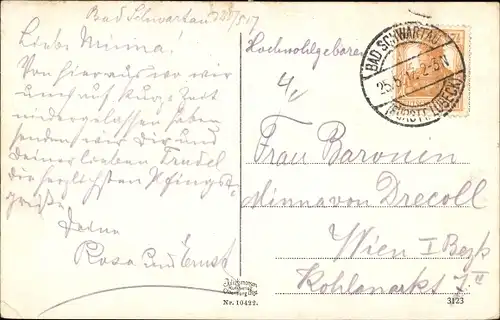 Bad Schwartau 23/5 17
Liebe Minna!
Von hier aus wo wir
uns auf kurze Zeit
niedergelassen haben
senden wir Dir und
Deiner lieben Trudel
die herzlichsten Pfingst-
grüße
Deine
Rosa und Ernst
Hochwohlgeboren
BAD SCHWARTAU
25.5.17. 2-3 N
(FÜRSTT. LÜBECK)
Frau Baronin
Minna von Drecoll
Wien I Bezk
Kohlmarkt 7
Nr. 10422.
3123